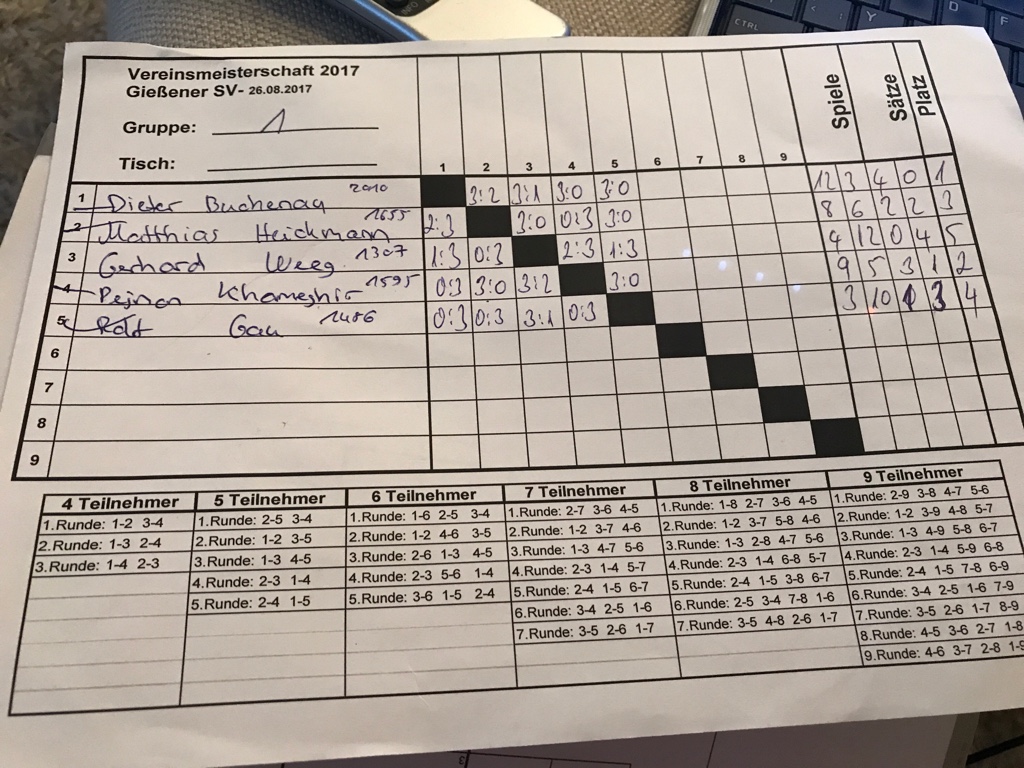 Vereinsmeisterschaft 2017
Gießener SV- 26.08.2017
Gruppe: 1
Tisch:
1 2 3 4 5 6 7 8 9 Spiele Sätze Platz
1 Dieter Buchenau 2010 3:2 3:1 3:0 3:0 12 3 4 0 1
2 Matthias Heickmann 1655 2:3 3:0 0:3 3:0 8 6 2 2 3
3 Gerhard Weeg 1307 1:3 0:3 2:3 1:3 4 12 0 4 5
4 1595 0:3 3:0 3:2 3:0 9 5 3 1 2
5 Gau 1486 0:3 0:3 3:1 0:3 3 10 1 3 4
6
7
8
9
4 Teilnehmer
1.Runde: 1-2 3-4
2.Runde: 1-3 2-4
3.Runde: 1-4 2-3
5 Teilnehmer
1.Runde: 2-5 3-4
2.Runde: 1-2 3-5
3.Runde: 1-3 4-5
4.Runde: 2-3 1-4
5.Runde: 2-4 1-5
6 Teilnehmer
1.Runde: 1-6 2-5 3-4
2.Runde: 1-2 4-6 3-5
3.Runde: 2-6 1-3 4-5
4.Runde: 2-3 5-6 1-4
5.Runde: 3-6 1-5 2-4
7 Teilnehmer
1.Runde: 2-7 3-6 4-5
2.Runde: 1-2 3-7 4-6
3.Runde: 1-3 4-7 5-6
4.Runde: 2-3 1-4 5-7
5.Runde: 2-4 1-5 6-7
6.Runde: 3-4 2-5 1-6
7.Runde: 3-5 2-6 1-7
8 Teilnehmer
1.Runde: 1-8 2-7 3-6 4-5
2.Runde: 1-2 3-7 5-8 4-6
3.Runde: 1-3 2-8 4-7 5-6
4.Runde: 2-3 1-4 6-8 5-7
5.Runde: 2-4 1-5 3-8 6-7
6.Runde: 2-5 3-4 7-8 1-6
7.Runde: 3-5 4-8 2-6 1-7
9 Teilnehmer
1.Runde: 2-9 3-8 4-7 5-6
2.Runde: 1-2 3-9 4-8 5-7
3.Runde: 1-3 4-9 5-8 6-7
4.Runde: 2-3 1-4 5-9 6-8
5.Runde: 2-4 1-5 7-8 6-9
6.Runde: 3-4 2-5 1-6 7-9
7.Runde: 3-5 2-6 1-7 8-9
8.Runde: 4-5 3-6 2-7 1-8
9.Runde: 4-6 3-7 2-8 1-9
CTRL Y D F